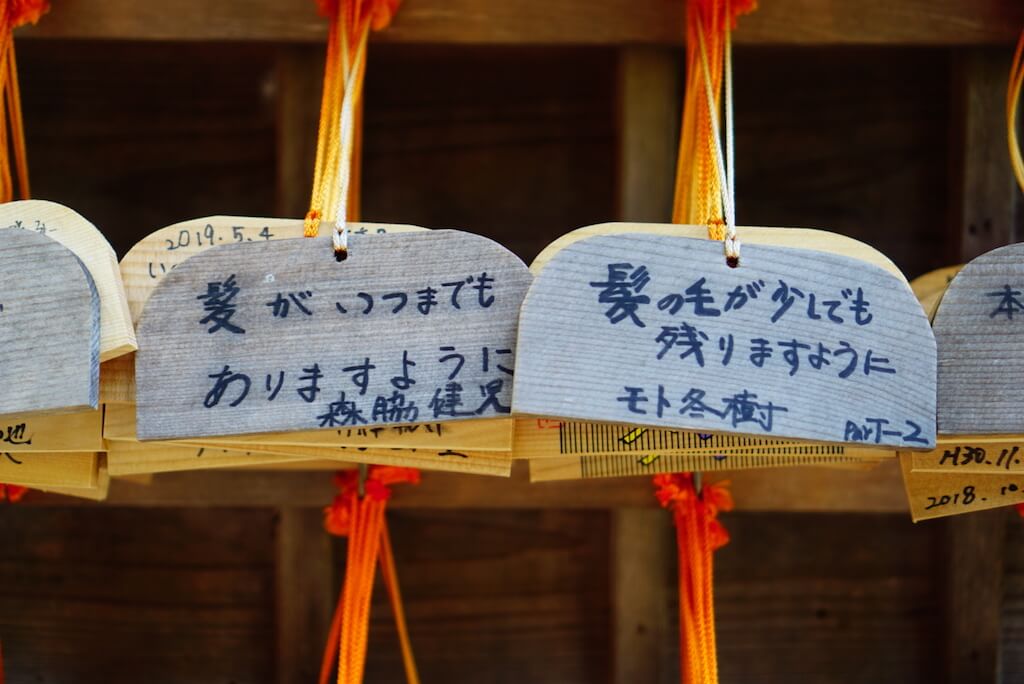 2019.5.4
髪がいつまでも
ありますように
森脇健児
髪の毛が少しでも
残りますように
モト冬樹
ParT-2
本
H30.11.
2018.10